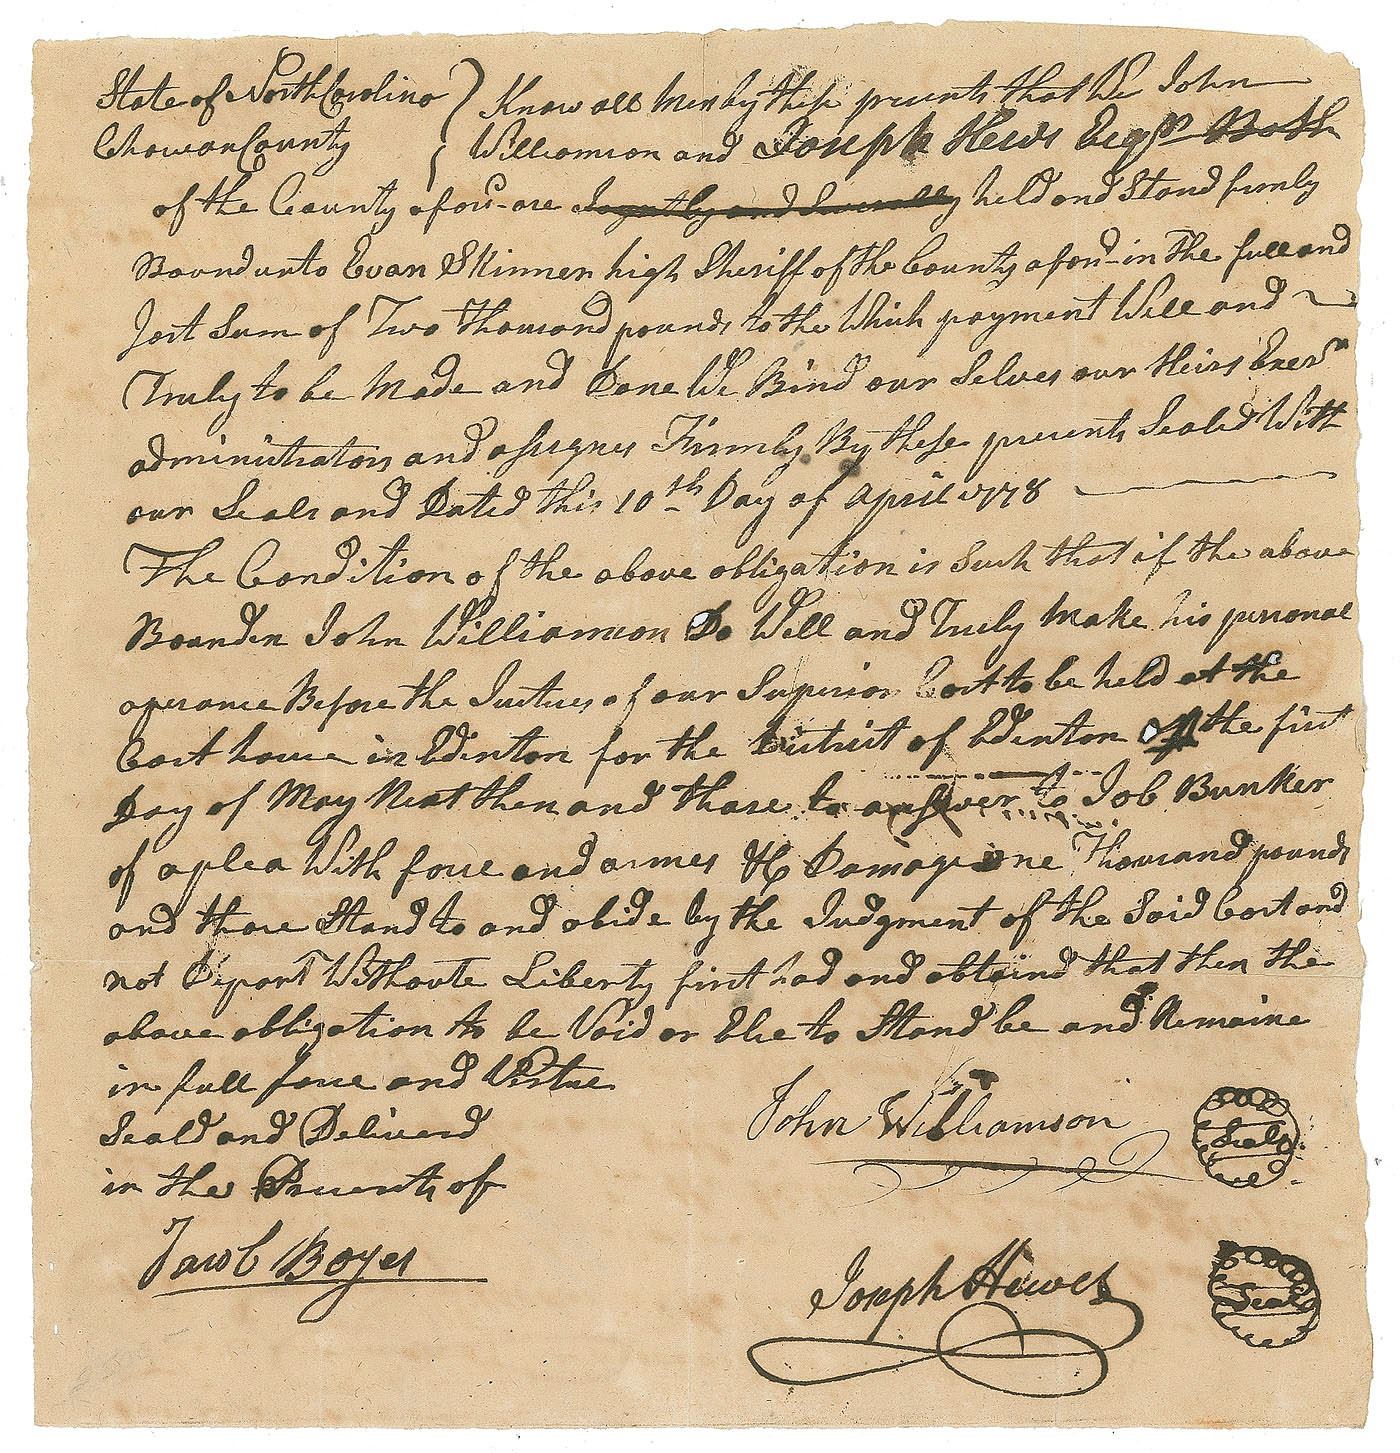 State of North Carolina } Know all Men by these presents that We John
Chowan County } Williamson and Joseph Hews Esqr. Both
of the County afors.d are Joyntly and Severally held and Stand firmly
Bound unto Evan Skinner high Sheriff of the County afors.d in the full and
Jost Sum of Two thousand pounds to the Which payment Well and
Truly to be Made and Done We Bind our Selves our Heirs Exers.
administrators and assignes Firmly By these presents Sealed With
our Seals and Dated this 10th Day of april 1778
The Condition of the above obligation is Such that if the above
Bounden John Williamson Do Well and Truly Make his personal
aperance Before the Justices of our Superior Cort to be held at the
Cort house in Edenton for the District of Edenton the first
Day of May Next then and thare to answer to Job Bunker
of a plea With force and armes &c Damage one Thousand pounds
and thare Stand to and abide by the Judgment of the Said Cort and
not Depart Withoute Liberty first had and obtaind that then the
above obligation to be Void or Else to Stand be and Remaine
in full force and Virtue
Seald and Deliverd
in the Presents of
John Williamson Seal
Jacob Boyes
Joseph Hewes Seal